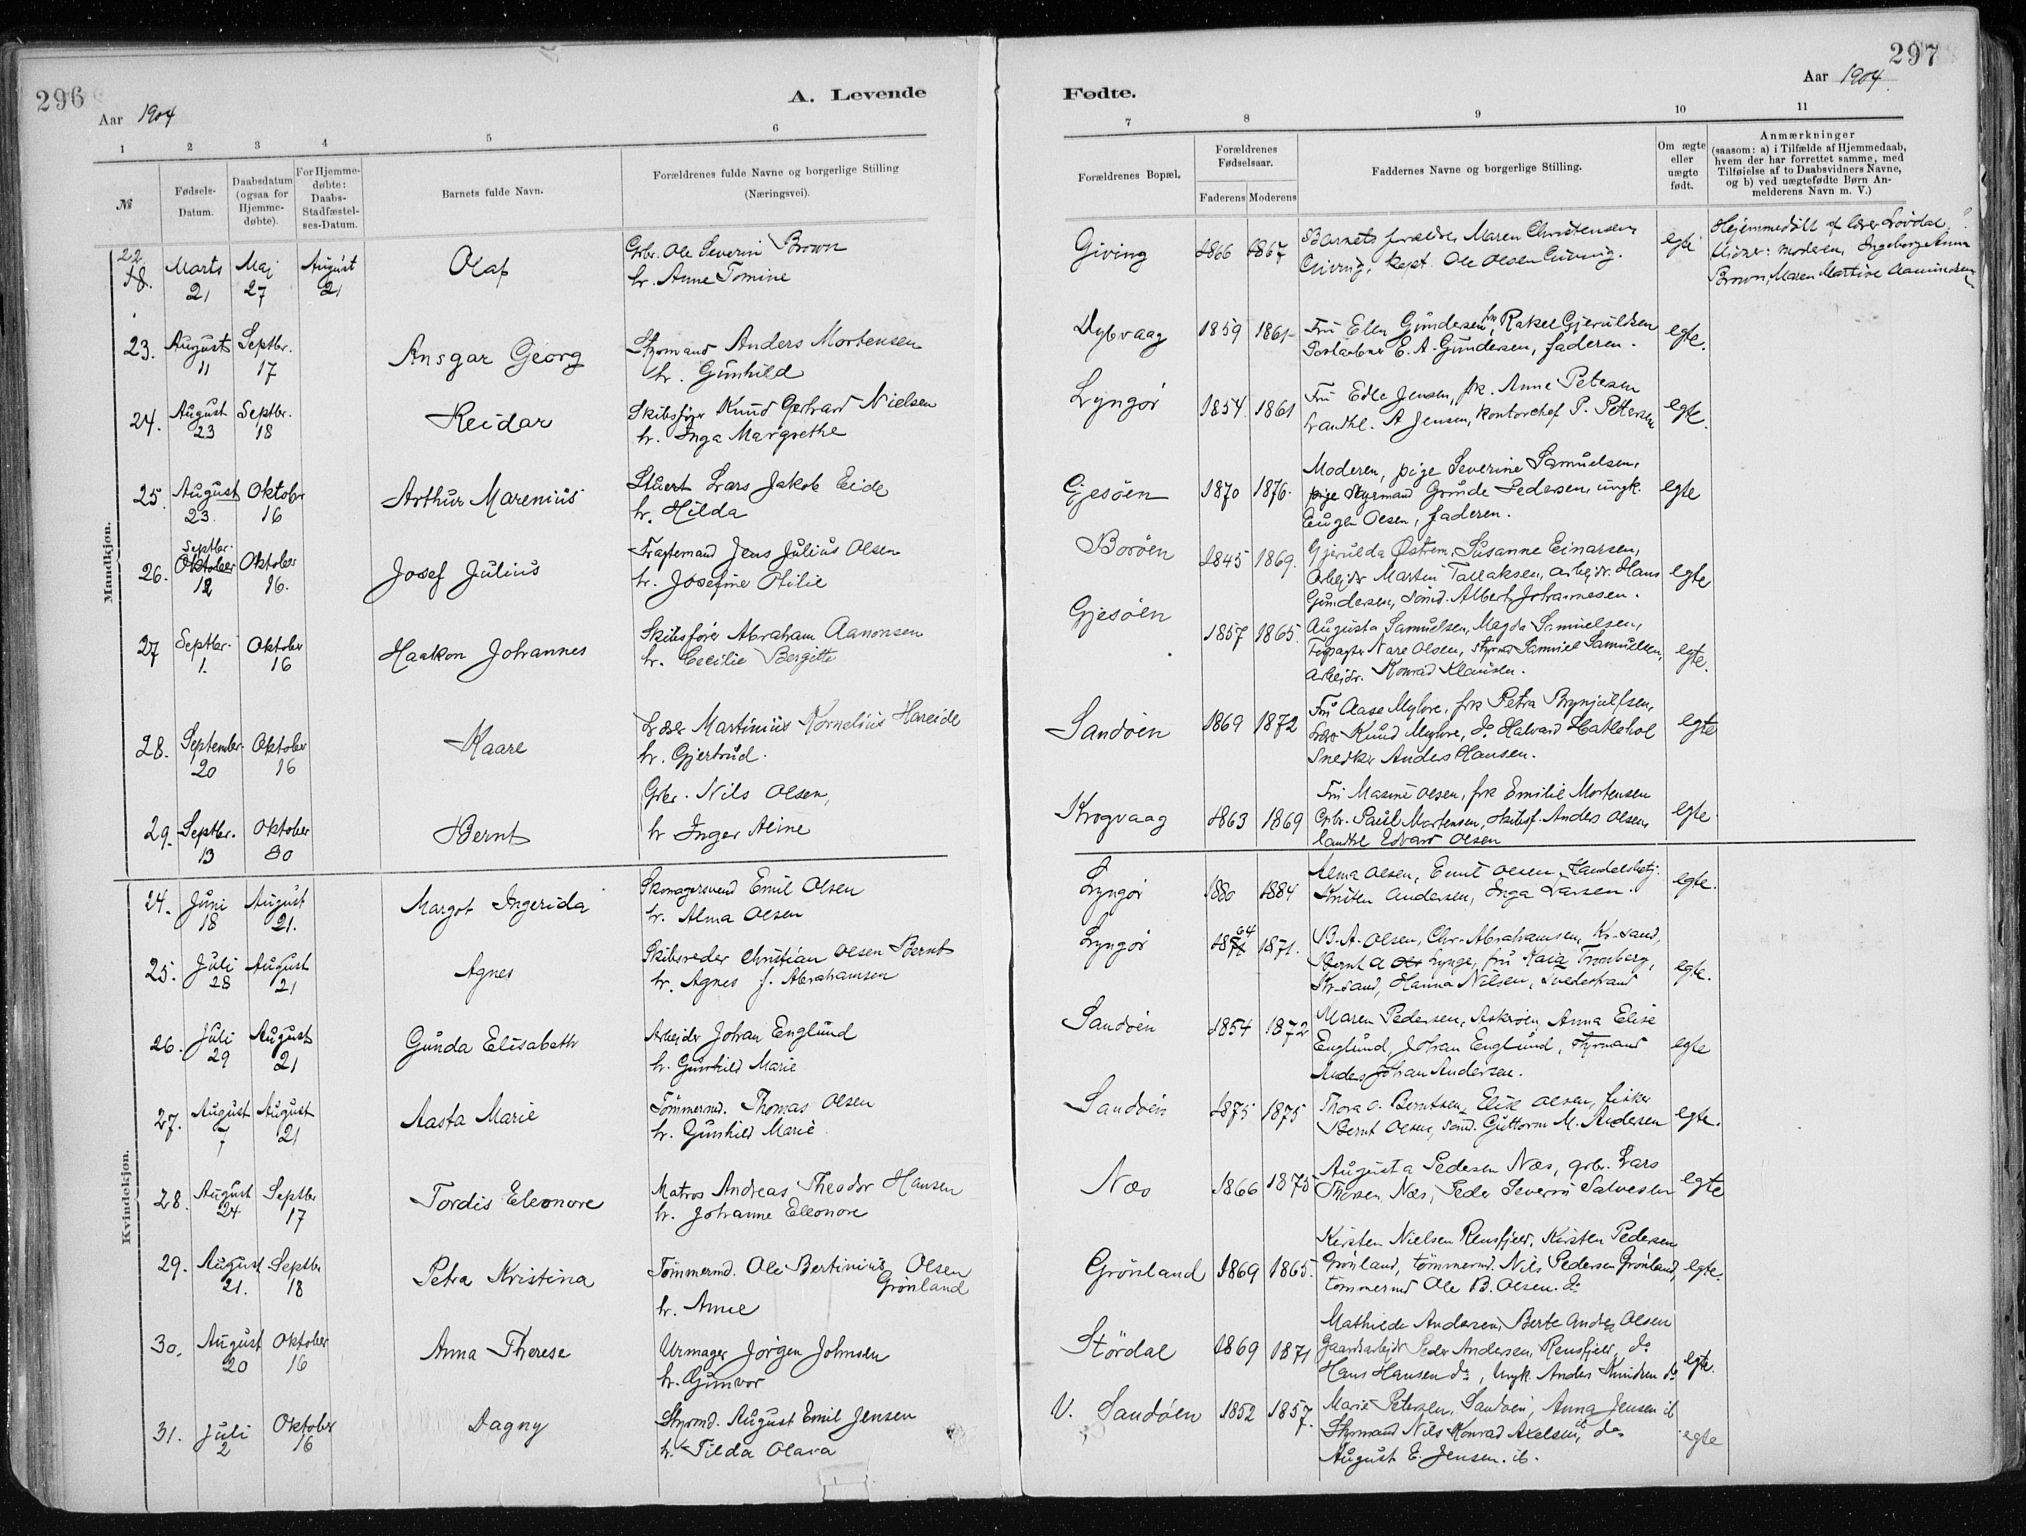 296
Aar 1904
A. Levende
1 2 3 4 5 6
№ Fødsels-Datum. Daabsdatum (ogsaa for Hjemme-døbte). For Hjemme-døbte: Daabs-Stadfæstel-ses-Datum. Barnets fulde Navn. Forældrenes fulde Navne og borgerlige Stilling (Næringsvei).
Mandkjøn.
22. 18. Marts 21 Maj 27 August 21 Olaf Gbr. Ole Severin Brown
h. Anne Tomine
23. August 11 Septbr. 17 Ansgar Georg Styrmand Anders Mortensen
h. Gunhild
24. August 23 Septbr. 18 Reidar Skibsfører Knud Gerhard Nielsen
h. Inga Margrethe
25. August 23. Oktober 16 Arthur Marenius Stuert Lars Jakob Eide
h. Hilda
26. Septbr. Oktober 12 Oktober 16. Josef Julius Fragtemand Jens Julius Olsen
h. Josefine Otilie
27 Septbr. 1. Oktober 16 Haakon Johannes Skibsfører Abraham Aanonsen
h. Cecilie Bergitte
28. September 20 Oktober 16 Kaare Martinius Kornelius Hareide
h. Gjertrud.
29. Septbr. 13 Oktober 30 Bernt Gbr. Nils Olsen,
h Inger Aline
Kvindekjøn.
24. Juni 18 August 21. Margot Ingerida Skomagersvend Emil Olsen
h. Alma Olsen
25. Juli 28 August 21 Agnes Skibsreder Christian Olsen Bernt
h. Agnes f. Abrahamsen
26. Juli 29 August 21 Gunda Elisabeth Arbejder Johan Englund
h. Gunhild Marie
27. August 7 August 21 Aasta Marie Tømmermd. Thomas Olsen
h. Gunhild Marie
28. August 24 Septbr 17 Tordis Eleonore Matros Andreas Theodor Hansen
h. Johanne Eleonore
29. August 21. Septbr 18 Petra Kristina Tømmermd. Ole Bertinius Olsen
Grønland
h. Anne
30. August 20 Oktober 16 Anna Therese Urmager Jørgen Johnsen
h. Gunvor
31. Juli 2 Oktober 16 Dagny Styrmd. August Emil Jensen
h. Tilda Olava
297
Aar 1904.
Fødte.
7 8 9 10 11
Forældrenes Bopæl. Forældrenes Fødselsaar. Faderens Moderens Faddernes Navne og borgerlige Stilling. Om ægte eller uægte født. Anmærkninger (saasom: a) i Tilfælde af Hjemmedaab, hvem der har forrettet samme, med Tilføielse af to Daabsvidners Navne, og b) ved uægtefødte Børn Anmelderens Navn m. V.)
Giving 1866 1867 Barnets forældre, Maren Christensen, egte Hjemmedøbt af lærer Løvdal
Giving, kapt. Ole Olsen Giving. Vidner: moderen, Ingeborg Anna
Brown, Maren Martine Aamundsen
Dybvaag 1859 1861 Fru Elen Gundersen, frk Rakel Gjeruldsen egte.
Postaabner E. A. Gundersen, faderen.
Lyngør 1854 1861 Fru Edle Jensen, frk. Anne Petersen egte.
Landhl. A Jensen, kontorchef P. Pettersen
Gjesøen 1870 1876. Moderen, pige Severine Samuelsen, egte
pige styrmand Gunde Pedersen, ungk.
Eugen Olsen, faderen.
Borøen 1845 1869. Gjerulda Østrem, Susanne Einarsen, egte
Arbejdr Martin Tallaksen, arbejdr. Hans
Gundersen, sømd. Albert Johannesen.
Gjesøen 1857 1865. Augusta Samuelsen, Magda Samuelsen, egte.
Nare Olsen, styrmd Samuel Samuelsen,
arbejdr. Konrad Klausen.
Sandøen 1869 1872 Fru Aase Myhre, frk Petra Brynjulfsen, egte
Knud Myhre, do Halvard Hatlehol
Snedker Anders Hansen.
Krogvaag 1863 1869 Fru Maxine Olsen, frk Emilie Mortensen egte.
Gbr. Paul Mortensen, skibsf. Anders Olsen,
landhl Edvard Olsen
Lyngør 1880 1884 Alma Olsen, Emil Olsen, Handelsbetj. egte.
Knuten Andersen, Inga Larsen.
Lyngør 1871 64 1871. B. A. Olsen, Chr. Abrahamsen, Kr.sand, egte.
Bernt A Lynge, fru Kaia Tromberg,
Kr.sand, Hanna Nilsen, Tvedestrand
Sandøen 1854 1872 Maren Pedersen, Askerøen, Anna Elise egte
Englund, Johan Englund, styrmand
Anders Johan Andersen.
Sandøen 1875 1875 Thora O. Berntsen, Elise Olsen, fisker egte.
Bernt Olsen, sømd. Guttorm M. Andersen
Næs 1866 1875 Augusta Pedersen Næs, gbr. Lars egte
Thorsen, Næs, Peder Severin Salvesen
Grønland 1869 1865. Kirsten Nielsen Rensfjeld, Kirsten Pedersen egte.
Grønland, tømmermd. Nils Pedersen Grønland,
tømmermd Ole B. Olsen. do
Størdal 1869 1871 Mathilde Andersen, Berte Andrea Olsen egte.
Gaardarbejdr Peder Andersen, Rensfjeld, do
Hans Hansen do, Ungk. Anders Knudsen do
V. Sandøen 1852 1857. Marie Petersen, Sandøen, Anna Jensen ib egte
Styrmand Nils Konrad Axelsen, do
August E. Jensen. ib.